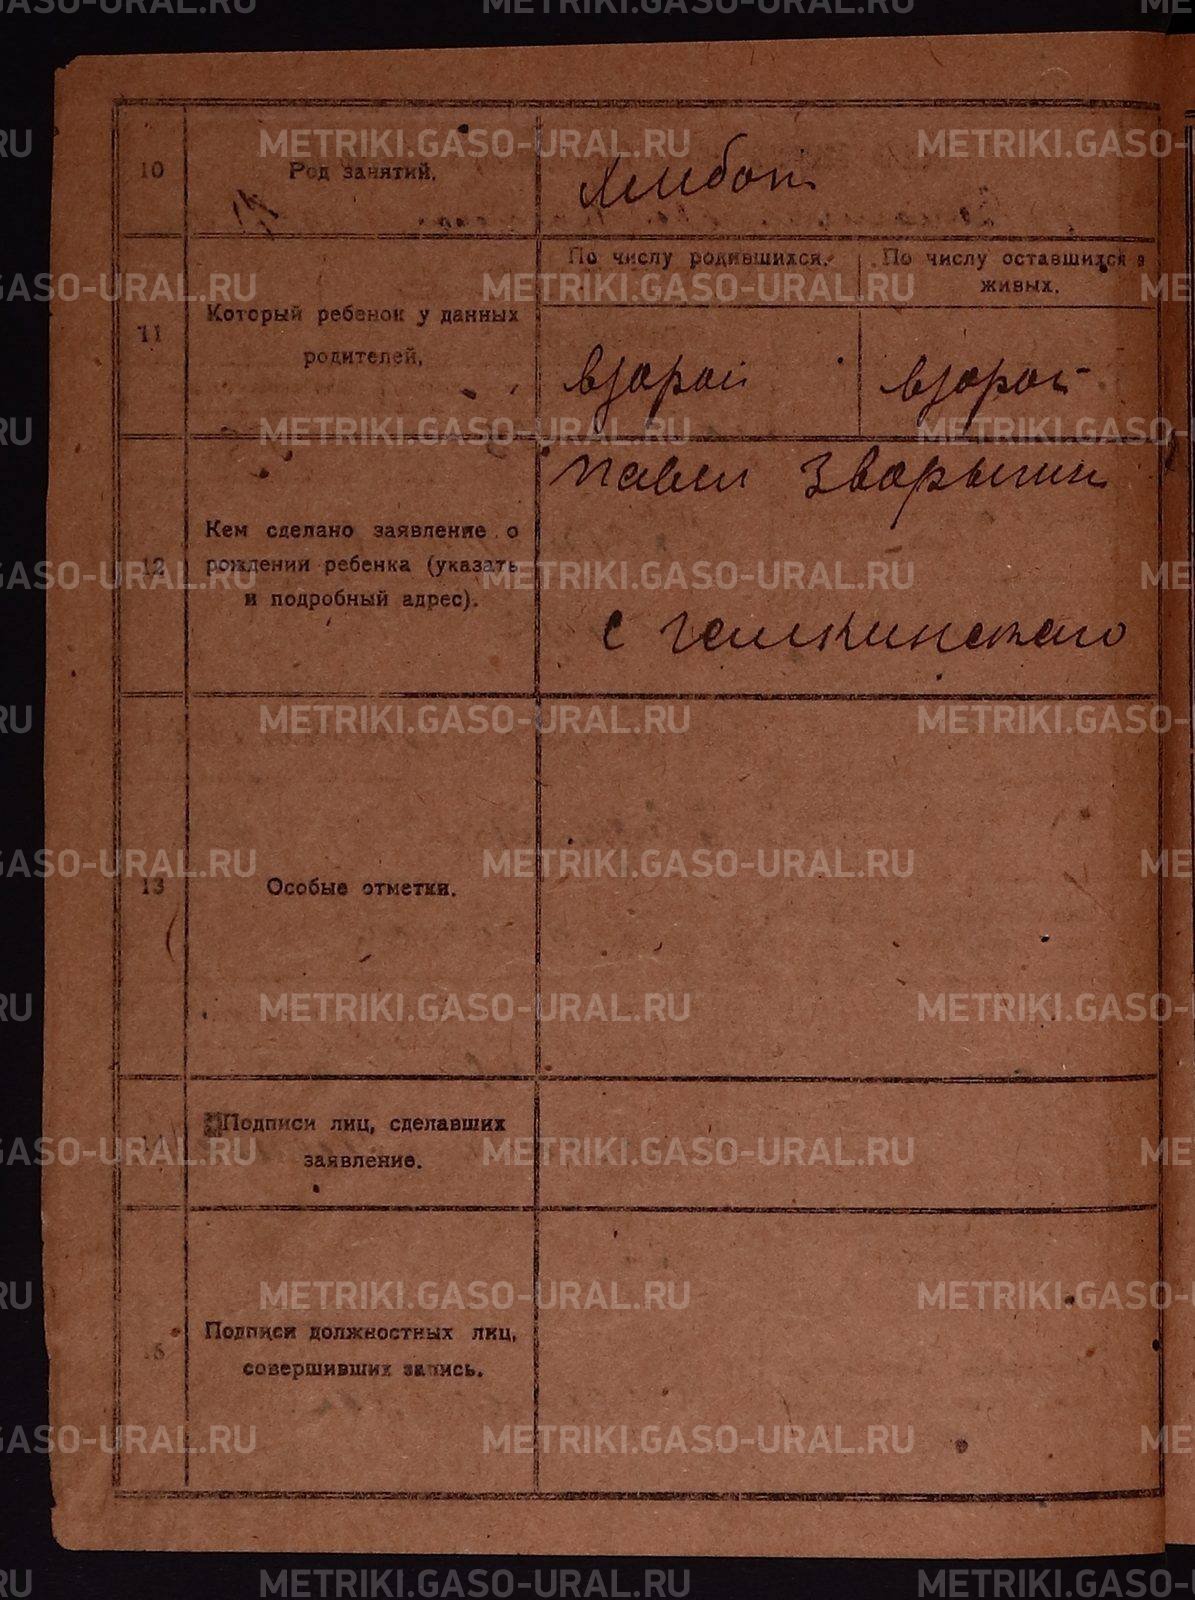 10
Род занятий.
Хлибоп
11
Который ребенок у данных
родителей.
По числу родившихся.
По числу оставшихся в
живых.
второй
второй
12
Кем сделано заявление о
рождении ребенка (указать
и подробный адрес).
Павел Зворыгин
с Галкинскаго
13
Особые отметки.
14
Подписи лиц, сделавших
заявление.
15
Подписи должностных лиц,
совершивших запись.
METRIKI.GASO-URAL.RU